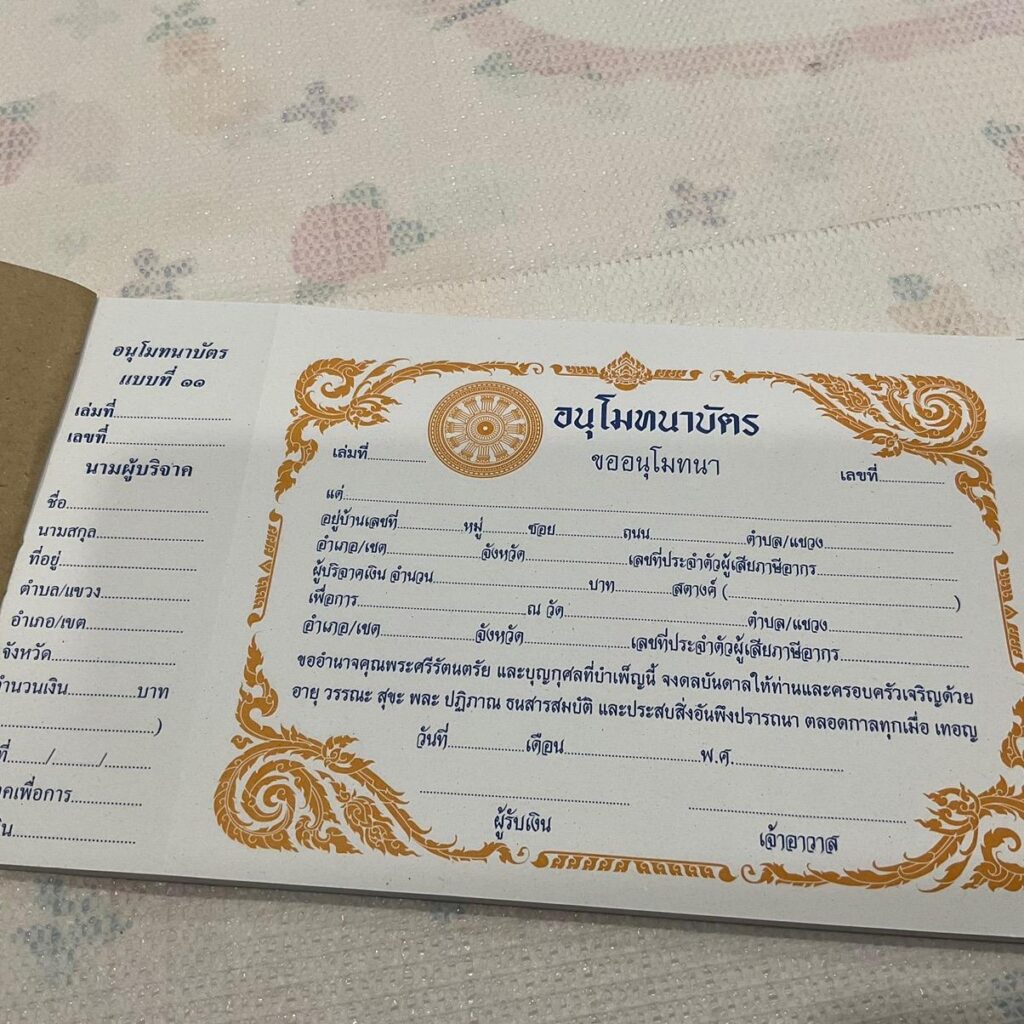 อนุโมทนาบัตร
แบบที่ ๑๑
เล่มที่
เลขที่
นามผู้บริจาค
ชื่อ
นามสกุล
ที่อยู่
ตำบล/แขวง
อำเภอ/เขต
จังหวัด
จำนวนเงิน บาท
)
ที่ / /
เพื่อการ
อนุโมทนาบัตร
ขออนุโมทนา
เล่มที่ เลขที่
แด่
อยู่บ้านเลขที่ หมู่ ซอย ถนน ตำบล/แขวง
อำเภอ/เขต จังหวัด เลขที่ประจำตัวผู้เสียภาษีอากร
ผู้บริจาคเงิน จำนวน บาท สตางค์ ( )
เพื่อการ ณ วัด ตำบล/แขวง
อำเภอ/เขต จังหวัด เลขที่ประจำตัวผู้เสียภาษีอากร
ขออำนาจคุณพระศรีรัตนตรัย และบุญกุศลที่บำเพ็ญนี้ จงดลบันดาลให้ท่านและครอบครัวเจริญด้วย
อายุ วรรณะ สุขะ พละ ปฏิภาณ ธนสารสมบัติ และประสบสิ่งอันพึงปรารถนา ตลอดกาลทุกเมื่อ เทอญ
วันที่ เดือน พ.ศ.
ผู้รับเงิน เจ้าอาวาส